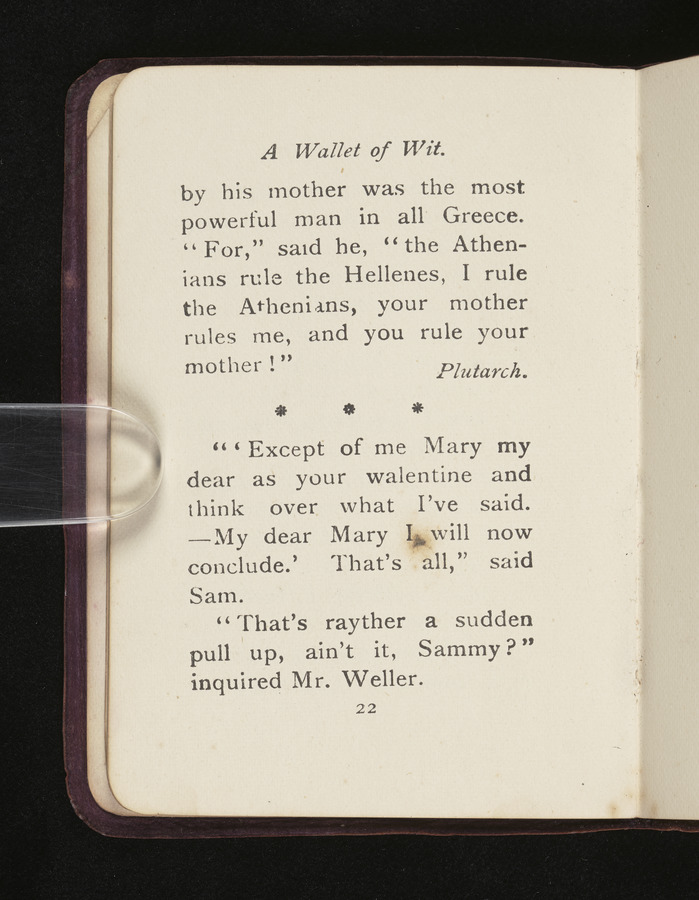 A Wallet of Wit.
by his mother was the most
powerful man in all Greece.
“For,” said he, “the Athen-
ians rule the Hellenes, I rule
the Athenians, your mother
rules me, and you rule your
mother!”
Plutarch.
* * *
“‘Except of me Mary my
dear as your walentine and
think over what I’ve said.
—My dear Mary I will now
conclude.’ That’s all,” said
Sam.
“That’s rayther a sudden
pull up, ain’t it, Sammy?”
inquired Mr. Weller.
22